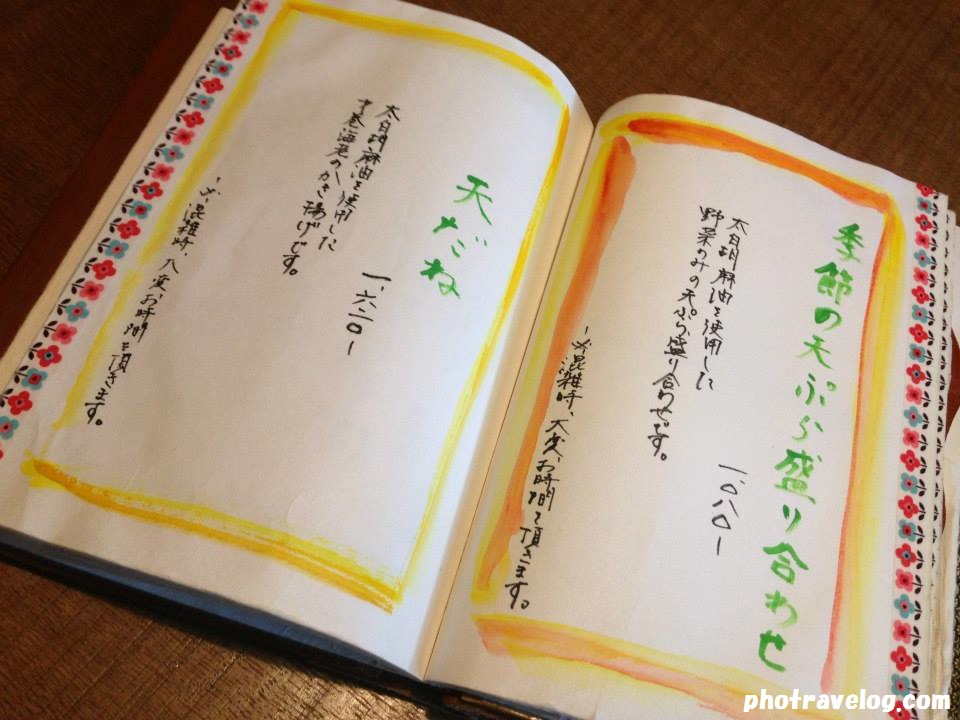 季節の天ぷら盛り合わせ
一、〇八〇ー
太白胡麻油を使用した
野菜のみの天ぷら盛り合わせです。
ー※混雑時、大変、お時間を頂きます。
天だね
一、六二〇ー
太白胡麻油を使用した
才巻海老のかき揚げです。
ー※混雑時、大変お時間を頂きます。
photravelog.com